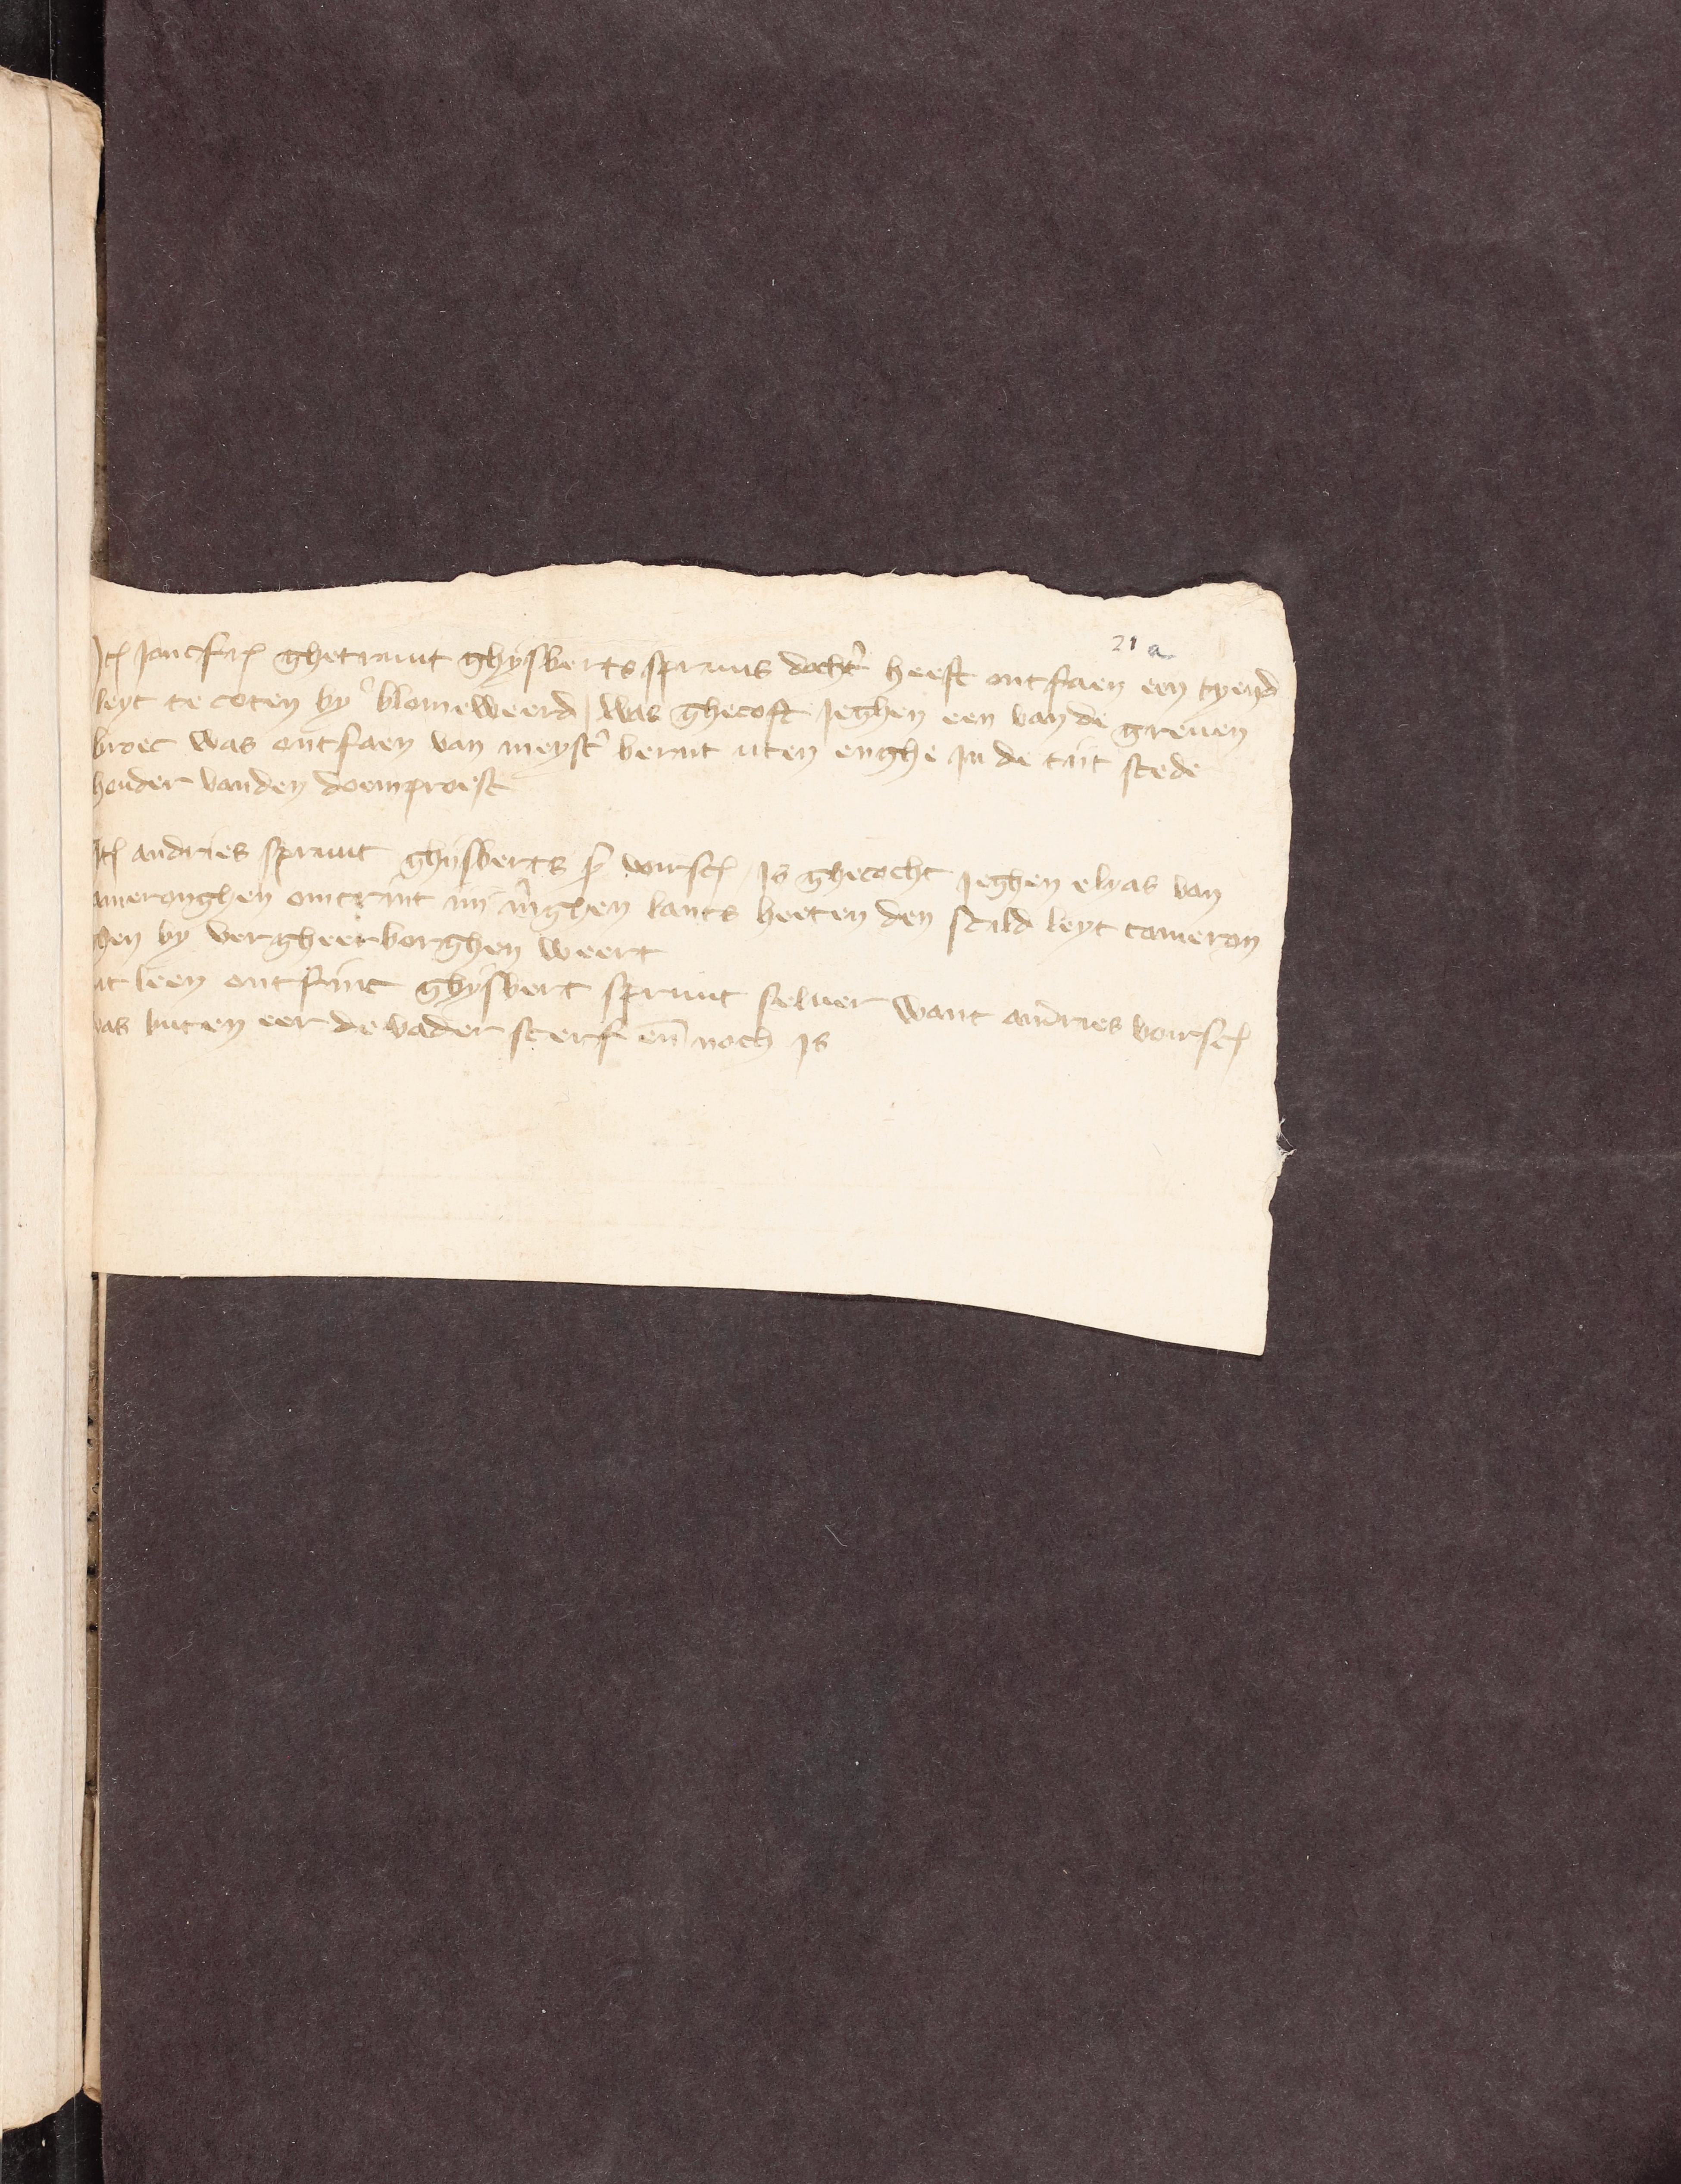 21 a
Itē Joncfrē ghetruut ghijsberts spruuts docht' heeft ontfaen een tyend
leyt te coten by blomeweerd / was ghecoft Jeghen een van de greuen
broec was ontfaen van meyst' bernt uten enghe In de tijt stede
houder vanden doemproest
Itē andries spruut ghijsberts voirsc Is ghecocht Jeghen elyas van
ameronghen omtrint iiij m'ghen lants heeten den scild leyt tameron
ghen by vergheerborghen weert
it leen ontfinc ghijsbert spruut seluer want andries voirsc
was buten eer de vader sterf en̄ noch Is